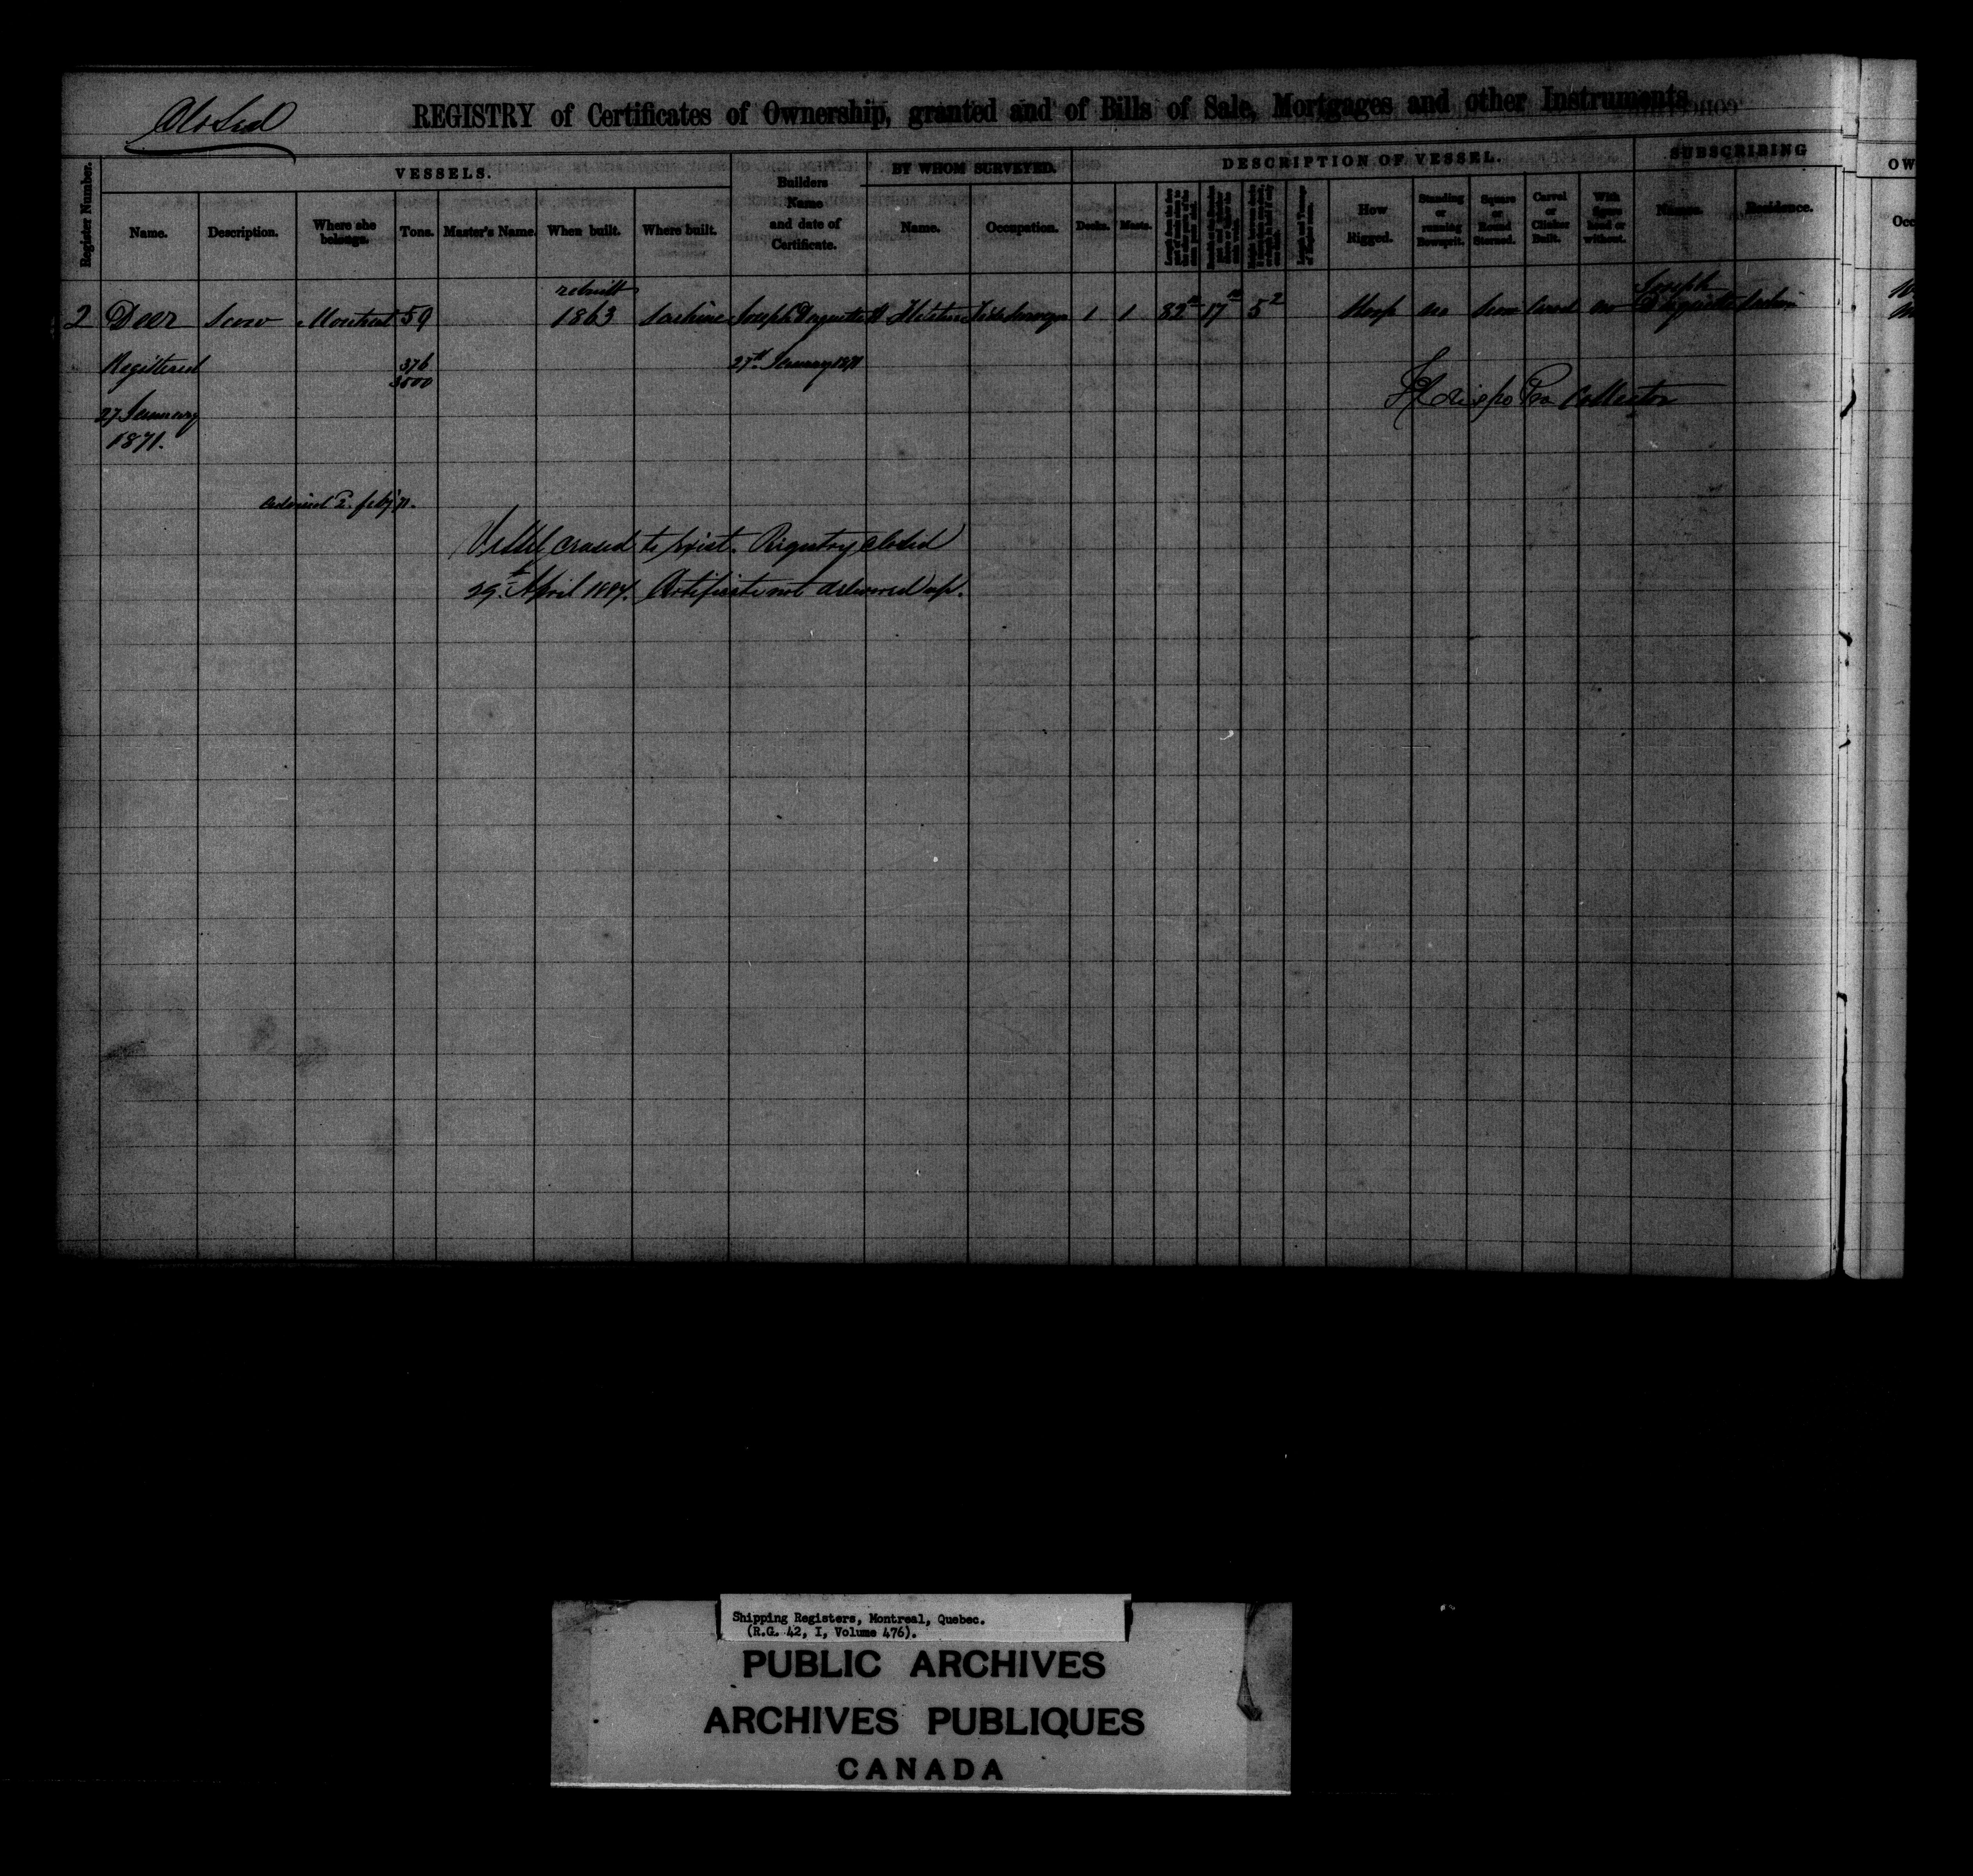 Closed
REGISTRY of Certificates of Ownership, granted and of Bills of Sale, Mortgages and other Instruments
Register Number.
VESSELS.
Name. Description. Where she belongs. Tons. Master's Name. When built. Where built.
Builders Name and date of Certificate.
BY WHOM SURVEYED.
Name. Occupation.
DESCRIPTION OF VESSEL.
Decks. Masts.
How Rigged.
Standing or running Bowsprit.
Square or Round Sterned.
Carvel or Clinker Built.
With figure head or without.
SUBSCRIBING
Names. Residence.
OW
Occ
rebuilt
2 Deer Scow Montreal 59 1863 Lachine Joseph Daguette 1 1 82 17 5 2 Sloop no Carvel no Joseph Lachine
Registered 376 27th January 1871
3500
27 January
1871.
Pro Collector
advised 2. feby 71.
Vessel ceased to exist. Registry closed
29th April 1884. Certificate not delivered up.
Shipping Registers, Montreal, Quebec.
(R.G. 42, I, Volume 476).
PUBLIC ARCHIVES
ARCHIVES PUBLIQUES
CANADA